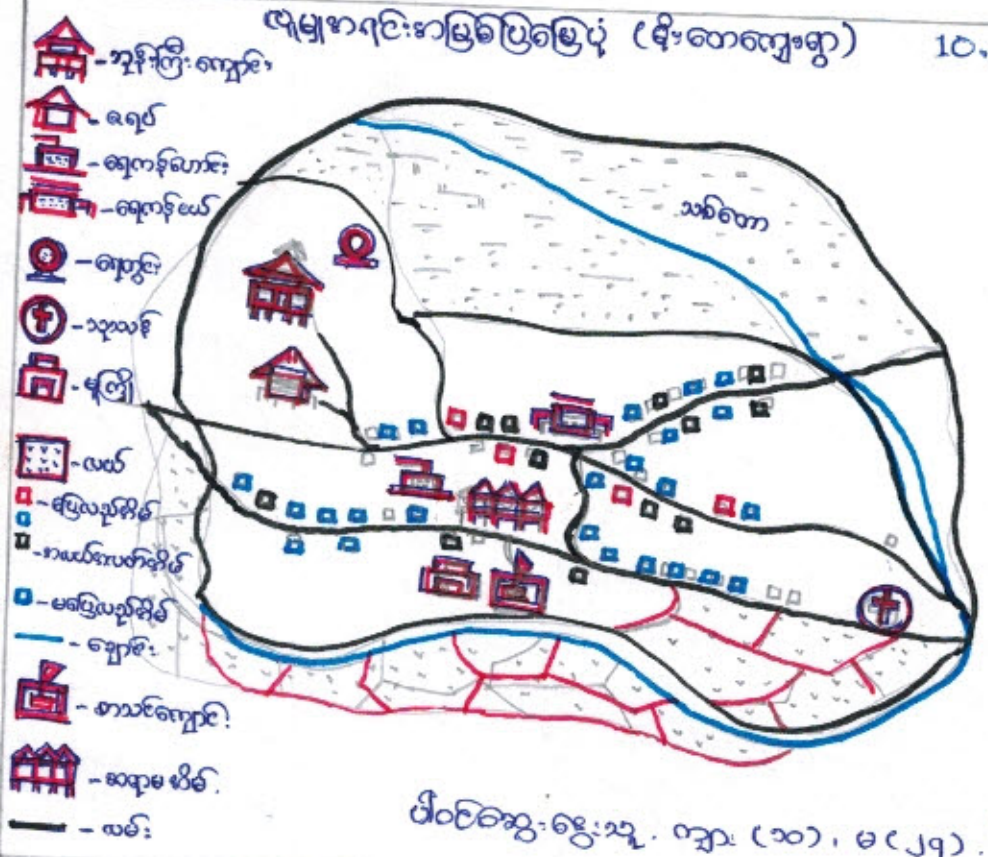 လူမှုအရင်းအမြစ်ပြမြေပုံ (စိုးတောကျေးရွာ)
10.
ဘုန်းကြီးကျောင်း
ဇရပ်
ရေကန်ဟောင်း
ရေကန်ငယ်
ရေတွင်း
သုသာန်
မူကြို
လယ်
ပြေလည်အိမ်
အလယ်အလတ်အိမ်
မပြေလည်အိမ်
ချောင်း
စာသင်ကျောင်း
ဆရာမအိမ်.
လမ်း
သစ်တော
ပါဝင်ဆွေးနွေးသူ. ကျား (၁၀), မ (၂၅).